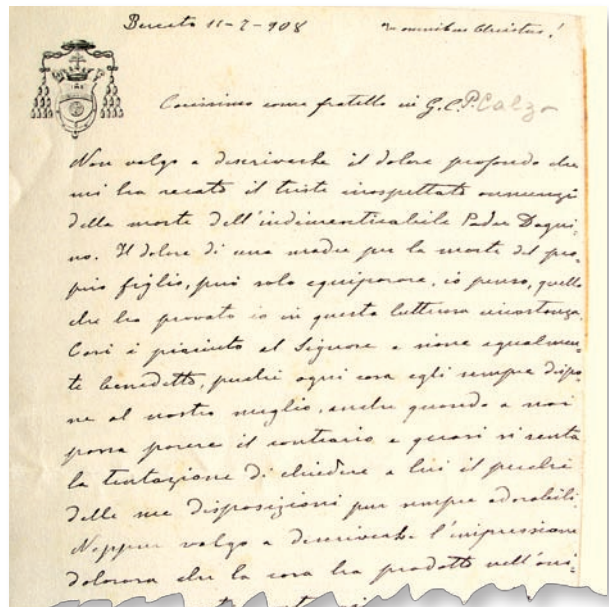 Berceto 11-2-908 In omnibus Christus!
Carissimo come fratello in G. C. P. Calza
Non valgo a descriverLe il dolore profondo che
mi ha recato il triste inaspettato annunzio
della morte dell'indimenticabile Padre Dagni-
no. Il dolore di una madre per la morte del pro-
prio figlio, può solo equiparare, io penso, quello
che ho provato io in questa luttuosa circostanza.
Così è piaciuto al Signore e sia egualmen-
te benedetto, perchè ogni cosa egli sempre dispo-
ne al nostro meglio, anche quando a noi
possa parere il contrario e quasi si senta
la tentazione di chiedere a lui il perchè
delle sue disposizioni pur sempre adorabili.
Neppur valgo a descriverLe l'impressione
dolorosa che la cosa ha prodotto nell'ani-